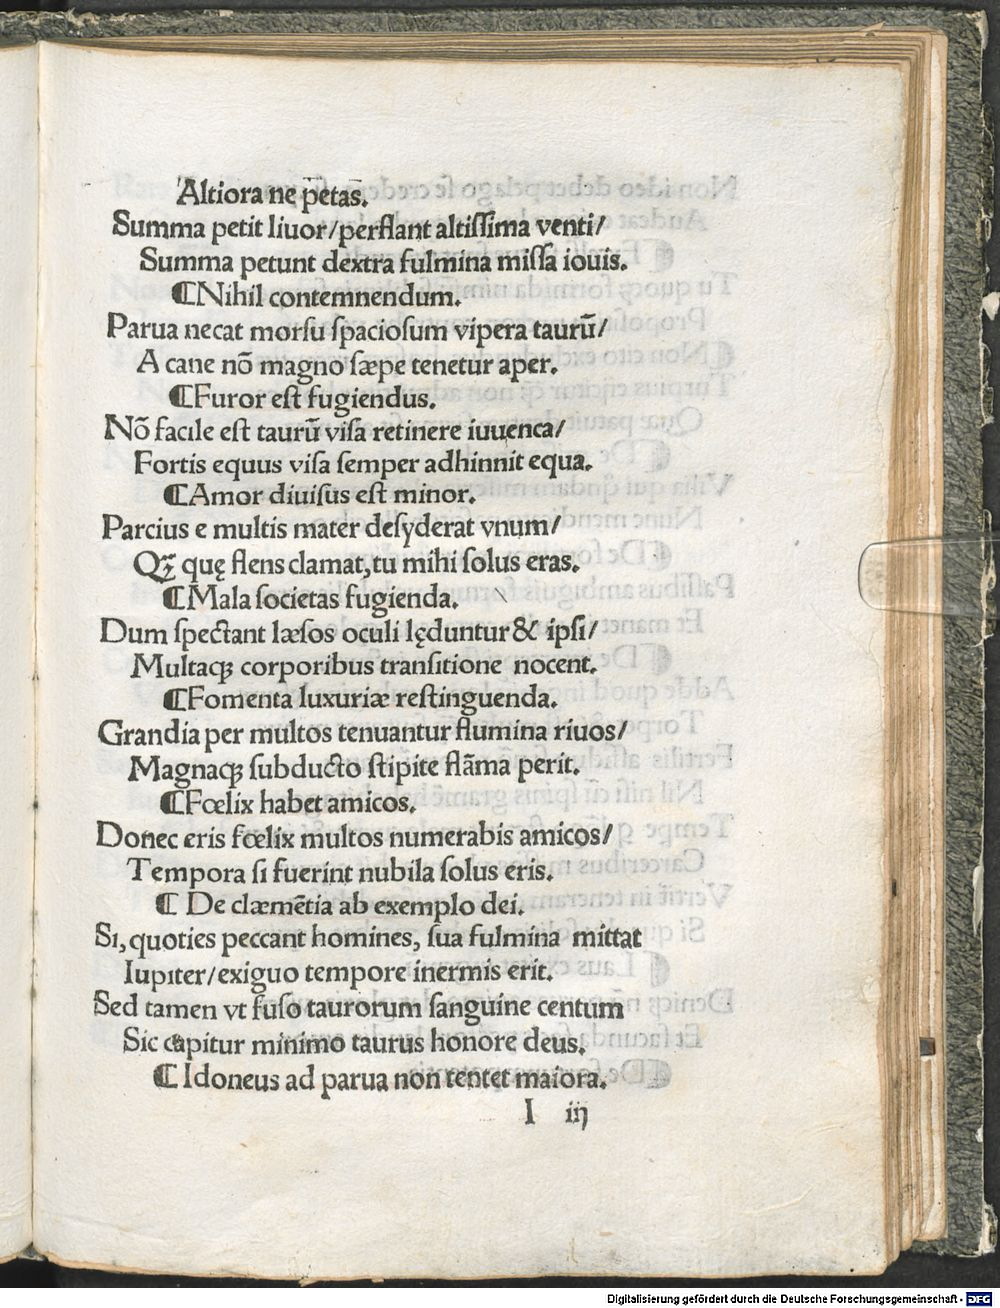 Altiora ne p̄etas̄.
Summa petit liuor/perflant altiſſima venti/
Summa petunt dextra fulmina miſſa iouis.
⸿Nihil contemnendum.
Parua necat morſu ſpacioſum vipera taurū/
A cane nō magno ſæpe tenetur aper.
⸿Furor eſt fugiendus.
Nō facile eſt taurū viſa retinere iuuenca/
Fortis equus viſa ſemper adhinnit equa.
⸿Amor diuiſus eſt minor.
Parcius e multis mater deſyderat vnum/
Qꝫ quę flens clamat,tu mihi ſolus eras.
⸿Mala ſocietas fugienda.
Dum ſpectant læſos oculi lęduntur & ipſi/
Multaqꝫ corporibus tranſitione nocent.
⸿Fomenta luxuriæ reſtinguenda.
Grandia per multos tenuantur flumina riuos/
Magnaqꝫ ſubducto ſtipite flāma perit.
⸿Fœlix habet amicos.
Donec eris fœlix multos numerabis amicos/
Tempora ſi fuerint nubila ſolus eris.
⸿ De clæmētia ab exemplo dei.
Si, quoties peccant homines, ſua fulmina mittat
Iupiter/exiguo tempore inermis erit.
Sed tamen vt fuſo taurorum ſanguine centum
Sic capitur minimo taurus honore deus.
⸿ Idoneus ad parua non tentet maiora.
I iij
Digitalisierung gefördert durch die Deutsche Forschungsgemeinschaft - DFG